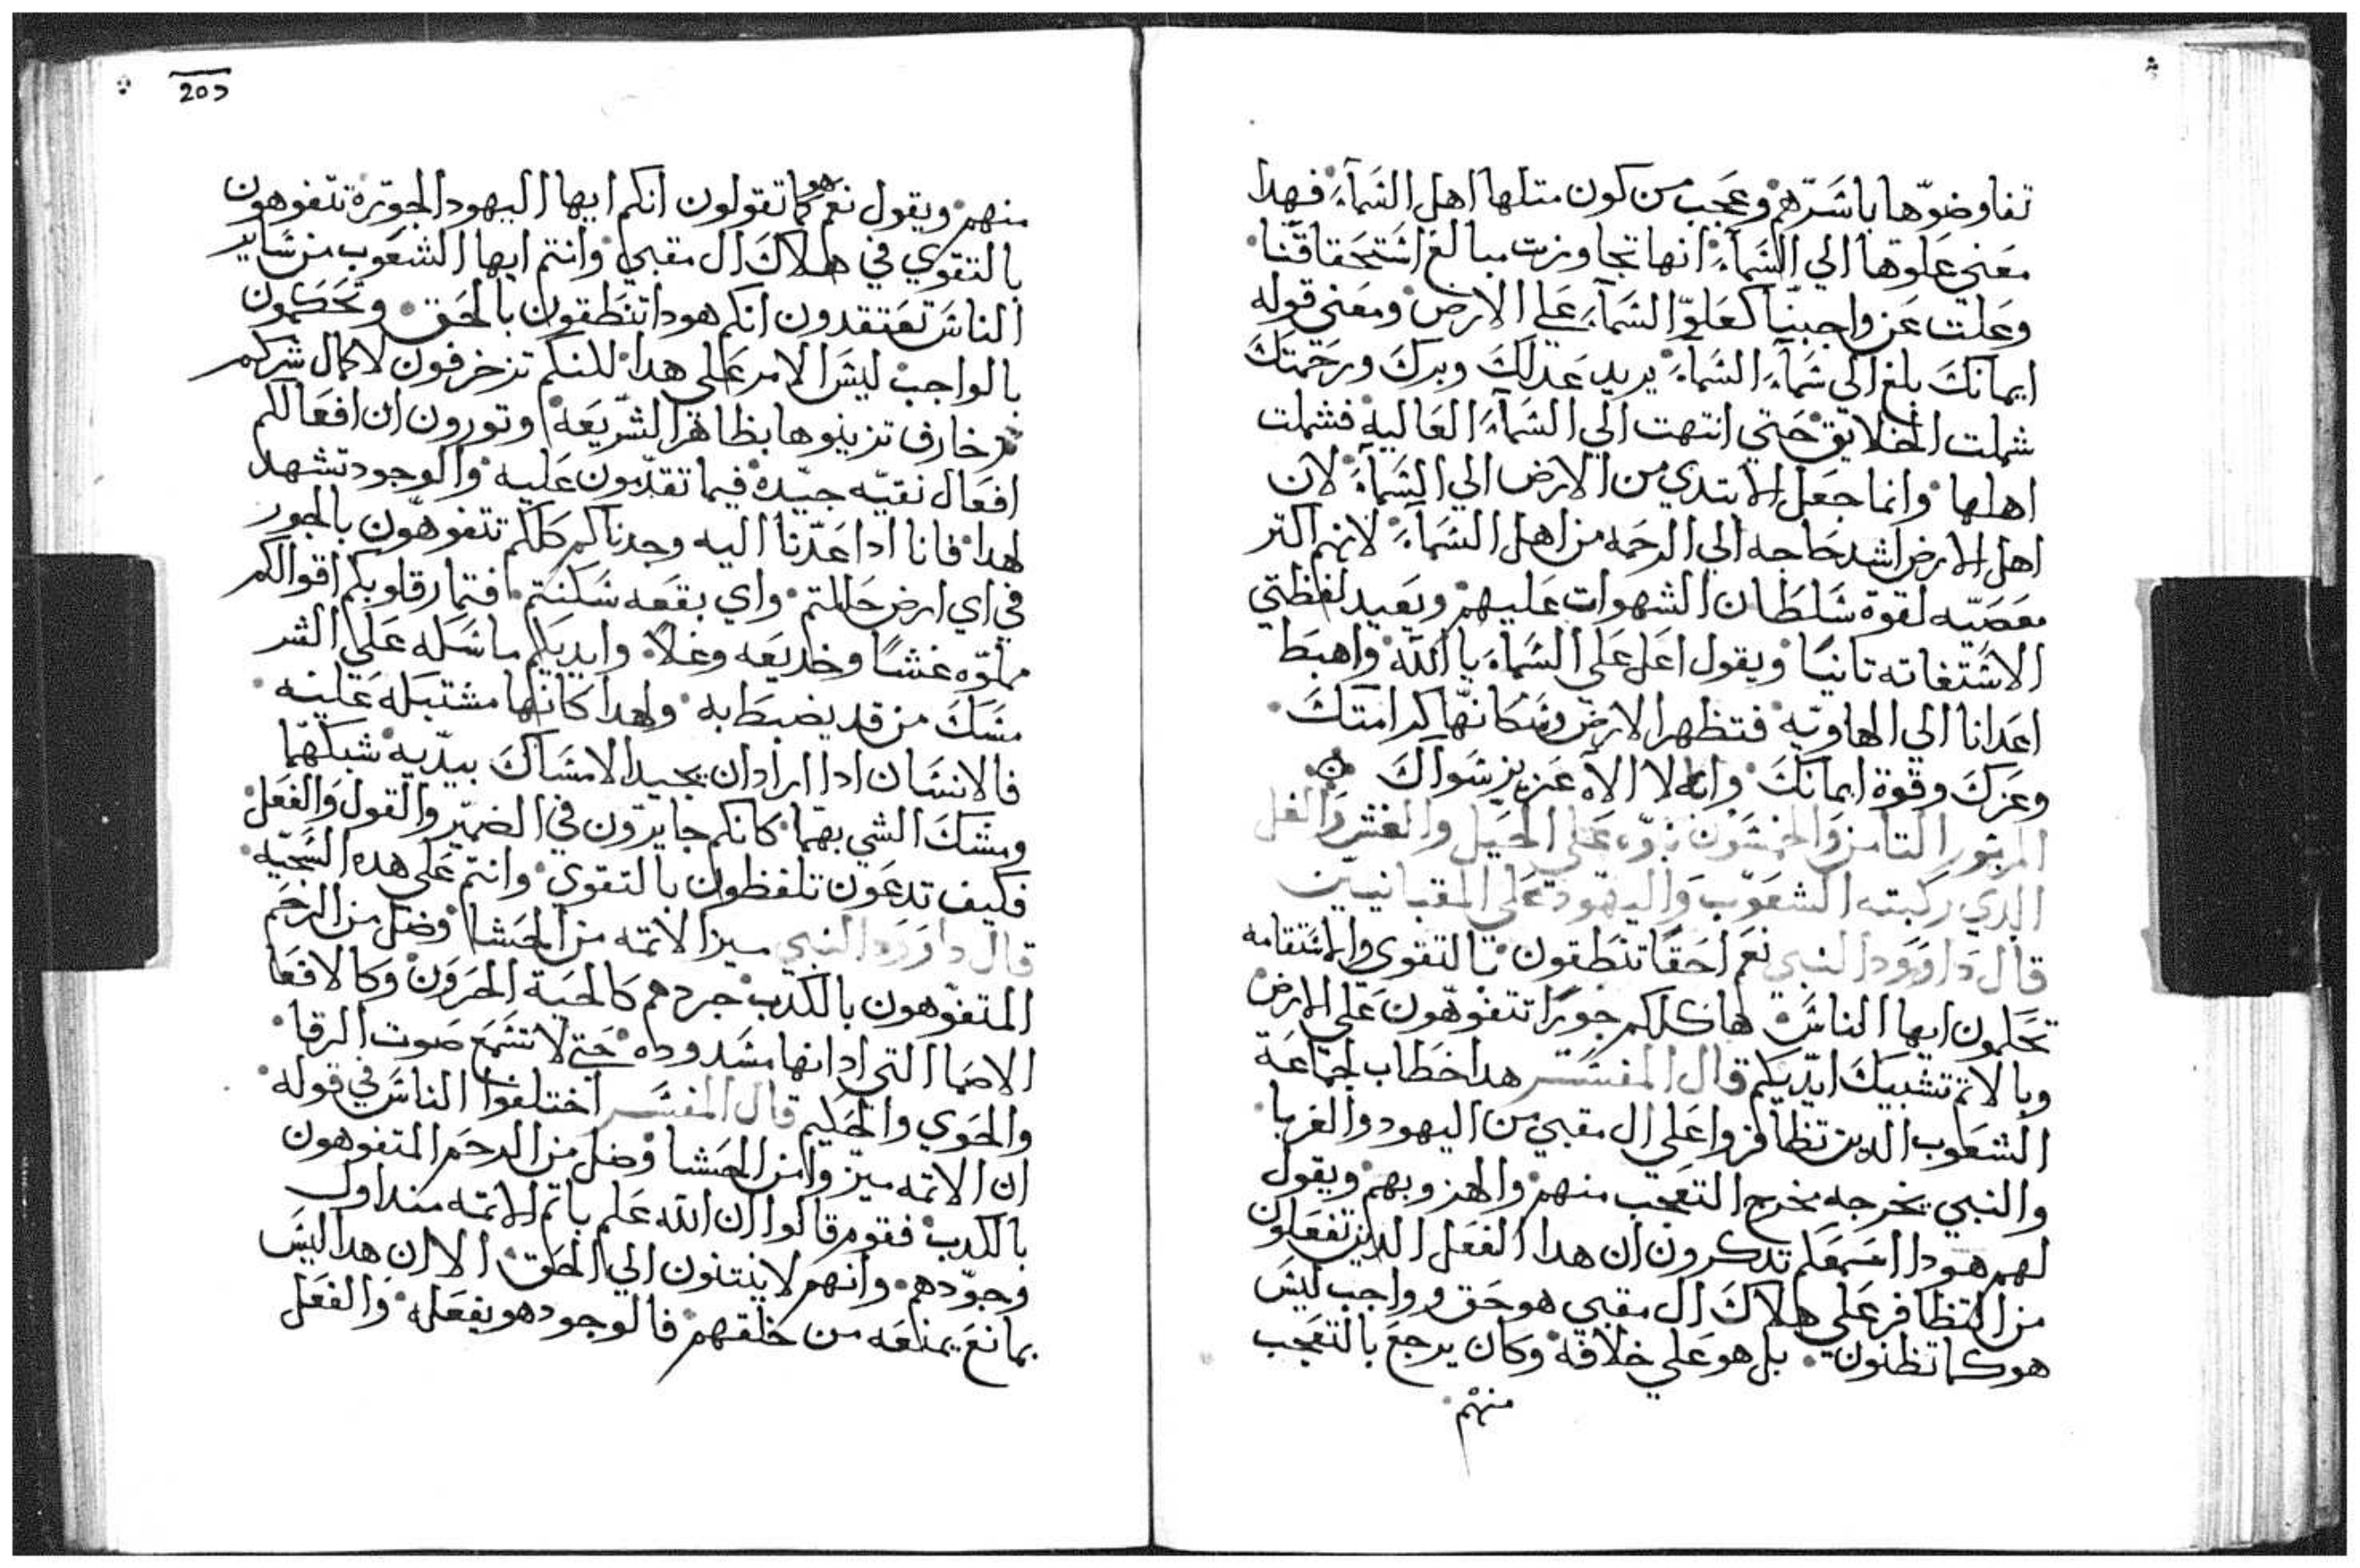 تفاوضوها باشرهم وعجب من كون متلها اهل السماء فهدا
معني علوها الي السماء انها تجاوزت مبالغ استحقاقنا
وعلت عن واجبنا كعلو السماء علي الارض ومعني قوله
ايمانك بلغ الي سماء السماء يريد عدلك وبرك ورحمتك
شملت الخلايق حتي انتهت الي السماء العاليه فشملت
اهلها وانما جعل الابتدي من الارض الي السماء لان
اهل الارض اشد حاجه الي الرحمه من اهل السماء لانهم اكتر
معصيه لقوة سلطان الشهوات عليهم ويعيد لفظتي
الاستغاته تانيا ويقول اعل علي السماء يا الله واهبط
اعدانا الي الهاويه فتظهر الارض وسكانها كرامتك
وعزك وقوة ايمانك وانه لا الاه عزيز سواك
المزمور التامن والخمسون نبوه علي الحيل والغش والغل
الدي ركبته الشعوب واليهود علي المقبانيين
قال داوود النبي نعم احقا تنطقون بالتقوي والاستقامه
تحكمون ايها الناس ها كلكم جورا تتفوهون علي الارض
وبالاتم تشبيك ايديكم قال المفسر هدا خطاب لجماعة
الشعوب الدين تظافروا علي ال مقبي من اليهود والغربا
والنبي يخرجه مخرج التعجب منهم والهزو بهم ويقول
لهم هودا اسمعكم تدكرون ان هدا الفعل الدين تفعلون
من التظافر علي هلاك ال مقبي هو حق وواجب ليس
هو كما تظنون بل هو علي خلافه وكان يرجع بالتعجب
منهم
205
منهم ويقول نعم هو كما تقولون انكم ايها اليهود الجورة تتفوهون
بالتقوي في هلاك ال مقبي وانتم ايها الشعوب من ساير
الناس تعتقدون انكم هودا تنطقون بالحق وتحكمون
بالواجب ليس الامر علي هدا للنكم تزخرفون لاكمال شركم
زخارف تزينوها بظاهر الشريعه وتورون ان افعالكم
افعال نقيه جيده فيما تقدمون عليه والوجود تشهد
لهدا فانا ادا عدنا اليه وجدناكم كلكم تتفوهون بالجور
في اي ارض حللتم واي بقعه سكنتم فتمار قلوبكم اقوالكم
مملوه غشا وخديعه وغلا وايديكم ماسكه علي الشر
مسك من قد يضبط به ولهدا كانها مشتبكه عليه
فالانسان ادا اراد ان يجيد الامساك بيديه شبكهما
ومسك الشي بهما كانكم جايرون في الضمير والقول والفعل
فكيف تدعون تلفظون بالتقوي وانتم علي هده السجيه
قال داوود النبي ميز الاتمه من الحشا وضل من الرحم
المتفوهون بالكدب حردهم كالحية الحرون وكالافعا
الاصما التي ادانها مشدوده حتي لا تسمع صوت الرقا
والحوي والحكيم قال المفسر اختلفوا الناس في قوله
ان الاتمه ميزوا من الحشا وضل من الرحم المتفوهون
بالكدب فقوم قالوا ان الله علم باتم الاتمه منداول
وجودهم وانهم لا ينتنون الي الحق الا ان هدا ليس
بمانع يمنعه من خلقهم فالوجود هو يفعله والفعل